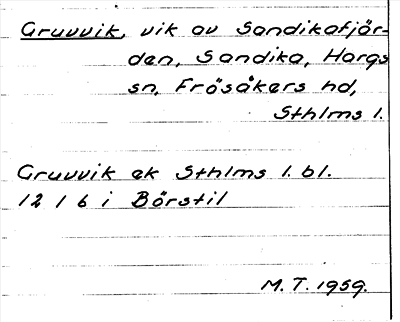 Gruvvik, vik av Sandikafjär-
den, Sandika, Hargs
sn, Frösåkers hd,
Sthlms l.
Gruvvik ek Sthlms l. bl.
12 1 6 i Börstil
M. T. 1959.